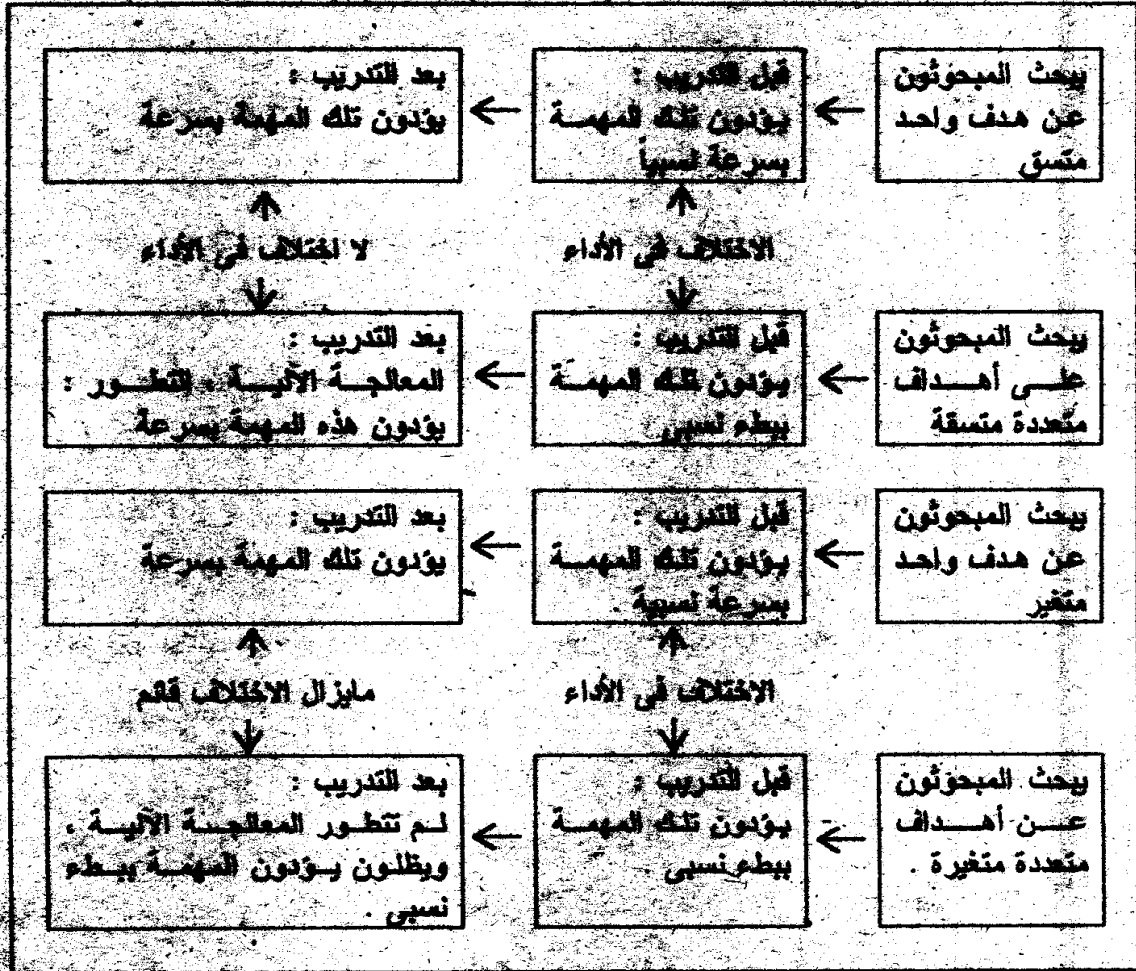 يبحث المبحوثون
عن هدف واحد
متسق
قبل التدريب :
يؤدون تلك المهمة
بسرعة نسبياً
بعد التدريب :
يؤدون تلك المهمة بسرعة
الاختلاف فى الأداء
لا اختلاف فى الأداء
يبحث المبحوثون
على أهداف
متعددة متسقة
قبل التدريب :
يؤدون تلك المهمة
ببطء نسبى
بعد التدريب :
المعالجة الآلية ، التطور :
يؤدون هذه المهمة بسرعة
يبحث المبحوثون
عن هدف واحد
متغير
قبل التدريب :
يؤدون تلك المهمة
بسرعة نسبية .
بعد التدريب :
يؤدون تلك المهمة بسرعة
الاختلاف فى الأداء
مايزال الاختلاف قائم
يبحث المبحوثون
عن أهداف
متعددة متغيرة .
قبل التدريب :
يؤدون تلك المهمة
ببطء نسبى .
بعد التدريب :
لم تتطور المعالجة الآلية ،
ويظلون يؤدون المهمة ببطء
نسبى .